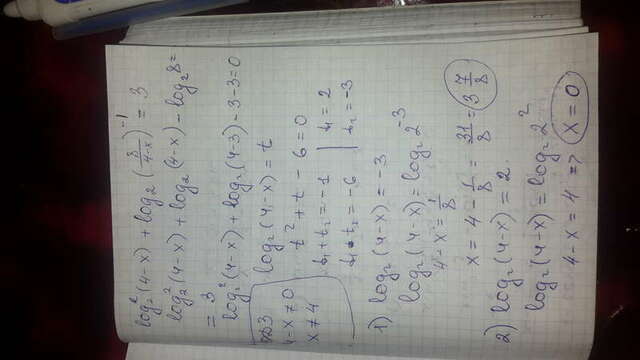 log₂²(4-x) + log₂(8/(4-x))⁻¹ = 3
log₂²(4-x) + log₂(4-x) - log₂8 =
= 3
log₂²(4-x) + log₂(4-3) - 3 - 3 = 0
ОДЗ
4-x ≠ 0
x ≠ 4
log₂(4-x) = t
t² + t - 6 = 0
t₁ + t₂ = -1 | t₁ = 2
t₁ · t₂ = -6 | t₂ = -3
1) log₂(4-x) = -3
log₂(4-x) = log₂2⁻³
4-x = 1/8
x = 4 - 1/8 = 31/8 = 3 7/8
2) log₂(4-x) = 2.
log₂(4-x) = log₂2²
4-x = 4 => x = 0